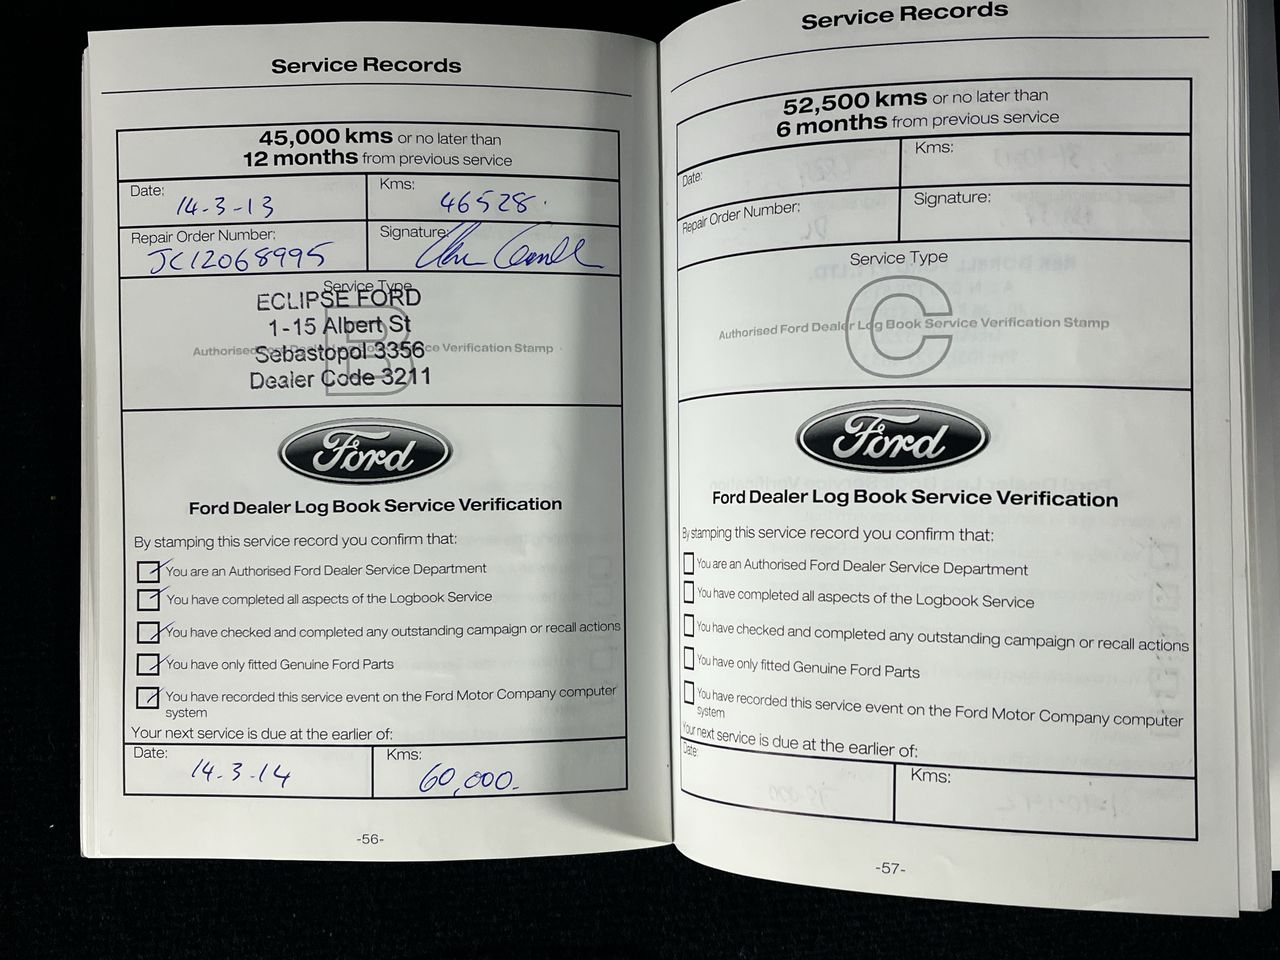 Service Records
45,000 kms or no later than
12 months from previous service
Date:
14-3-13
Kms:
46528.
Repair Order Number:
JC12068995
Signature:
Service Type
B
Authorised Ford Dealer Log Book Service Verification Stamp
ECLIPSE FORD
1-15 Albert St
Sebastopol 3356
Dealer Code 3211
Ford
Ford Dealer Log Book Service Verification
By stamping this service record you confirm that:
You are an Authorised Ford Dealer Service Department
You have completed all aspects of the Logbook Service
You have checked and completed any outstanding campaign or recall actions
You have only fitted Genuine Ford Parts
You have recorded this service event on the Ford Motor Company computer
system
Your next service is due at the earlier of:
Date:
14-3-14
Kms:
60,000.
-56-
Service Records
52,500 kms or no later than
6 months from previous service
Date:
Kms:
Repair Order Number:
Signature:
Service Type
C
Authorised Ford Dealer Log Book Service Verification Stamp
Ford
Ford Dealer Log Book Service Verification
By stamping this service record you confirm that:
You are an Authorised Ford Dealer Service Department
You have completed all aspects of the Logbook Service
You have checked and completed any outstanding campaign or recall actions
You have only fitted Genuine Ford Parts
You have recorded this service event on the Ford Motor Company computer
system
Your next service is due at the earlier of:
Date:
Kms:
-57-